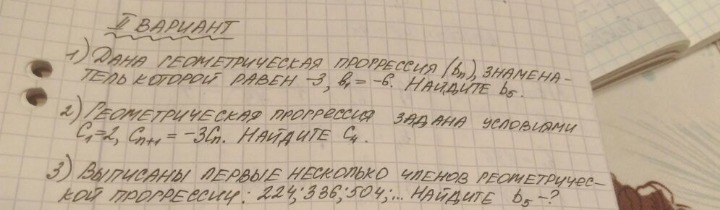 II ВАРИАНТ
1) ДАНА ГЕОМЕТРИЧЕСКАЯ ПРОГРЕССИЯ (bn), ЗНАМЕНА-
ТЕЛЬ КОТОРОЙ РАВЕН -3, b1 = -6. НАЙДИТЕ b5.
2) ГЕОМЕТРИЧЕСКАЯ ПРОГРЕССИЯ ЗАДАНА УСЛОВИЯМИ
C1=2, Cn+1 = -3Cn. НАЙДИТЕ C4.
3) ВЫПИСАНЫ ПЕРВЫЕ НЕСКОЛЬКО ЧЛЕНОВ ГЕОМЕТРИЧЕС-
КОЙ ПРОГРЕССИИ: 224; 336; 504;... НАЙДИТЕ b5 -?